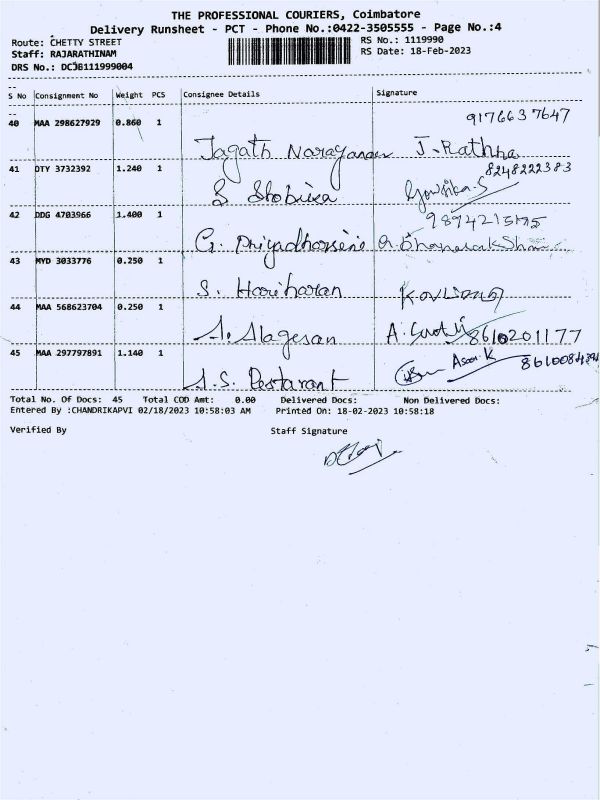 THE PROFESSIONAL COURIERS, Coimbatore
Delivery Runsheet - PCT - Phone No.:0422-3505555 - Page No.:4
Route: CHETTY STREET RS No.: 1119990
Staff: RAJARATHINAM RS Date: 18-Feb-2023
DRS No.: DCJB111999004
S No Consignment No Weight PCS Consignee Details Signature
40 MAA 298627929 0.860 1 9176637647
Jagath Narayanan J. Rathna
41 DTY 3732392 1.240 1 8248222383
S Gowsika.S
42 DDG 4703966 1.400 1
G. Priyadharsene
43 MYD 3033776 0.250 1
S. Hariharan
44 MAA 568623704 0.250 1
A. Alagesan A. 8610201177
45 MAA 297797891 1.140 1 Asar.K
A.S. Restarant
Total No. Of Docs: 45 Total COD Amt: 0.00 Delivered Docs: Non Delivered Docs:
Entered By :CHANDRIKAPVI 02/18/2023 10:58:03 AM Printed On: 18-02-2023 10:58:18
Verified By Staff Signature